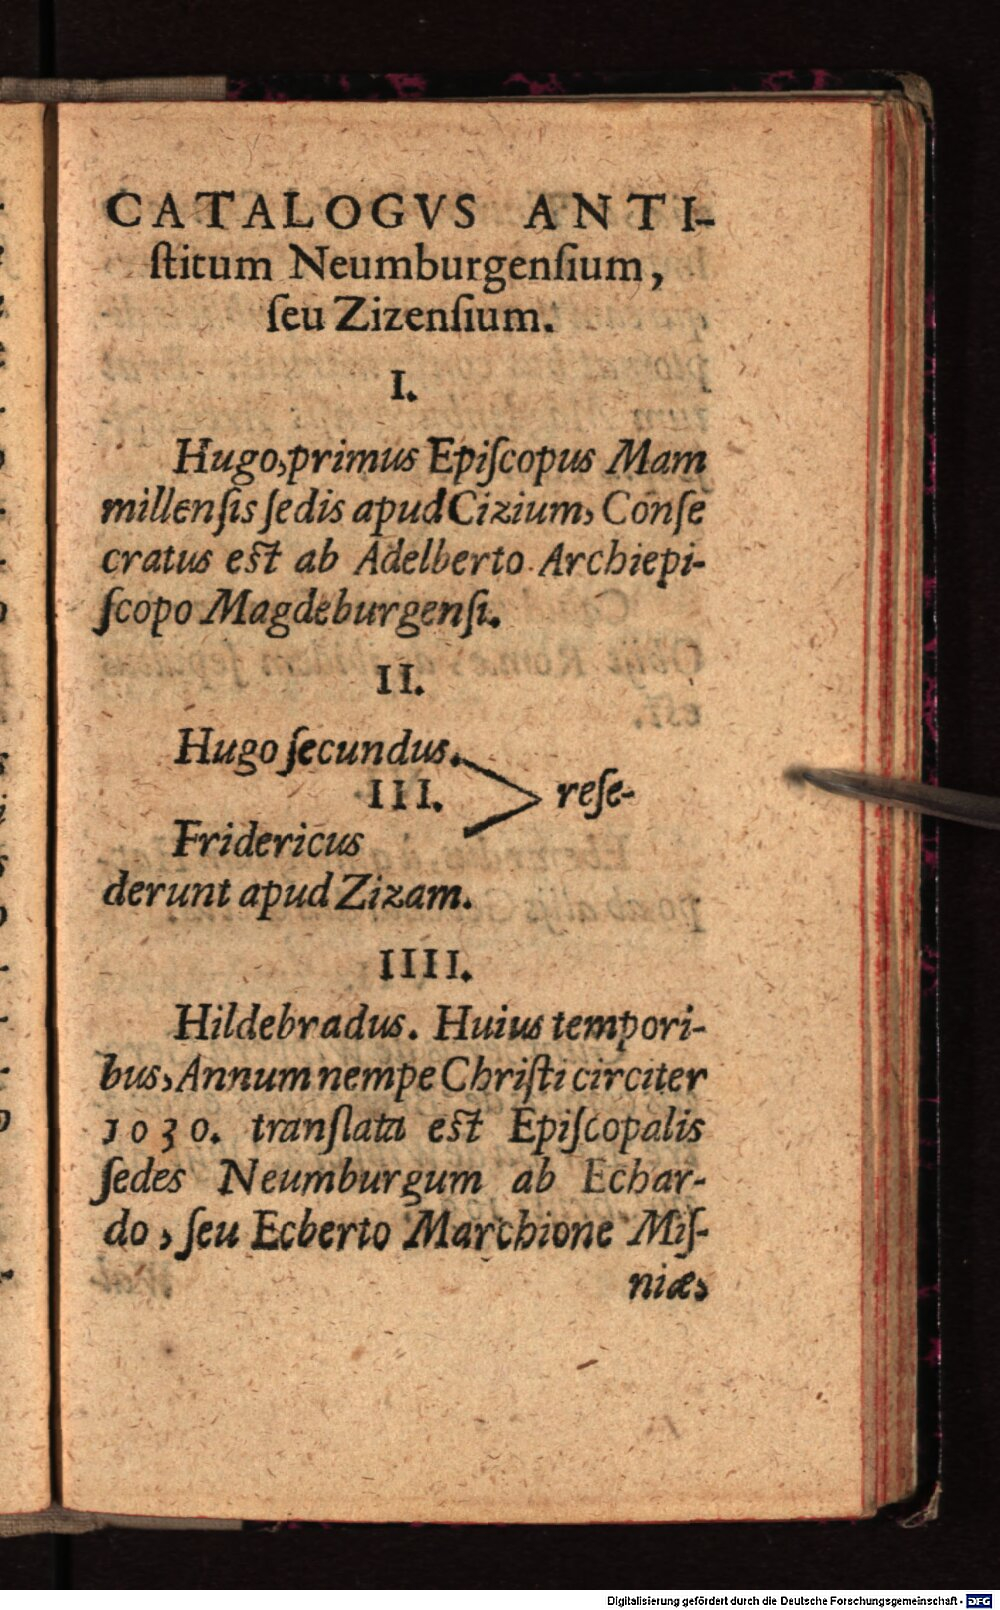 CATALOGVS ANTI-
ſtitum Neumburgenſium,
ſeu Zizenſium.
I.
Hugo, primus Epiſcopus Mam
millenſis ſedis apud Cizium, Conſe
cratus eſt ab Adelberto Archiepi-
ſcopo Magdeburgenſi.
II.
Hugo ſecundus.
III. reſe-
Fridericus
derunt apud Zizam.
IIII.
Hildebradus. Huius tempori-
bus, Annum nempe Chriſti circiter
1030. tranſlata eſt Epiſcopalis
ſedes Neumburgum ab Echar-
do, ſeu Ecberto Marchione Miſ-
niæ,
Digitalisierung gefördert durch die Deutsche Forschungsgemeinschaft - DFG